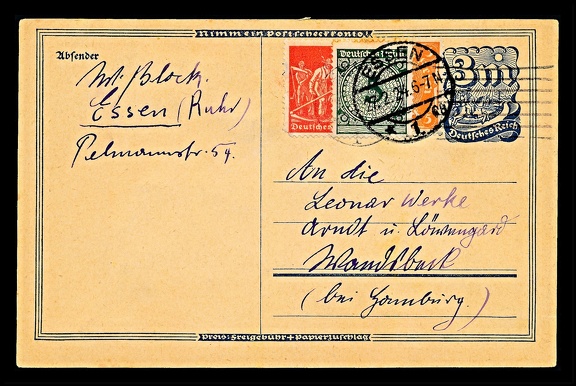 Nimm ein Postscheckkonto!
Absender
W. Block.
Essen (Ruhr)
Pelmannstr. 54.
Deutsches
Deutsches Reich
ESSEN
6-7 N
1
3 M
Deutsches Reich
An die
Leonar Werke
Arndt u. Löwengard
Wandsbeck
(bei Hamburg.)
Preis: Freigebühr + Papierzuschlag